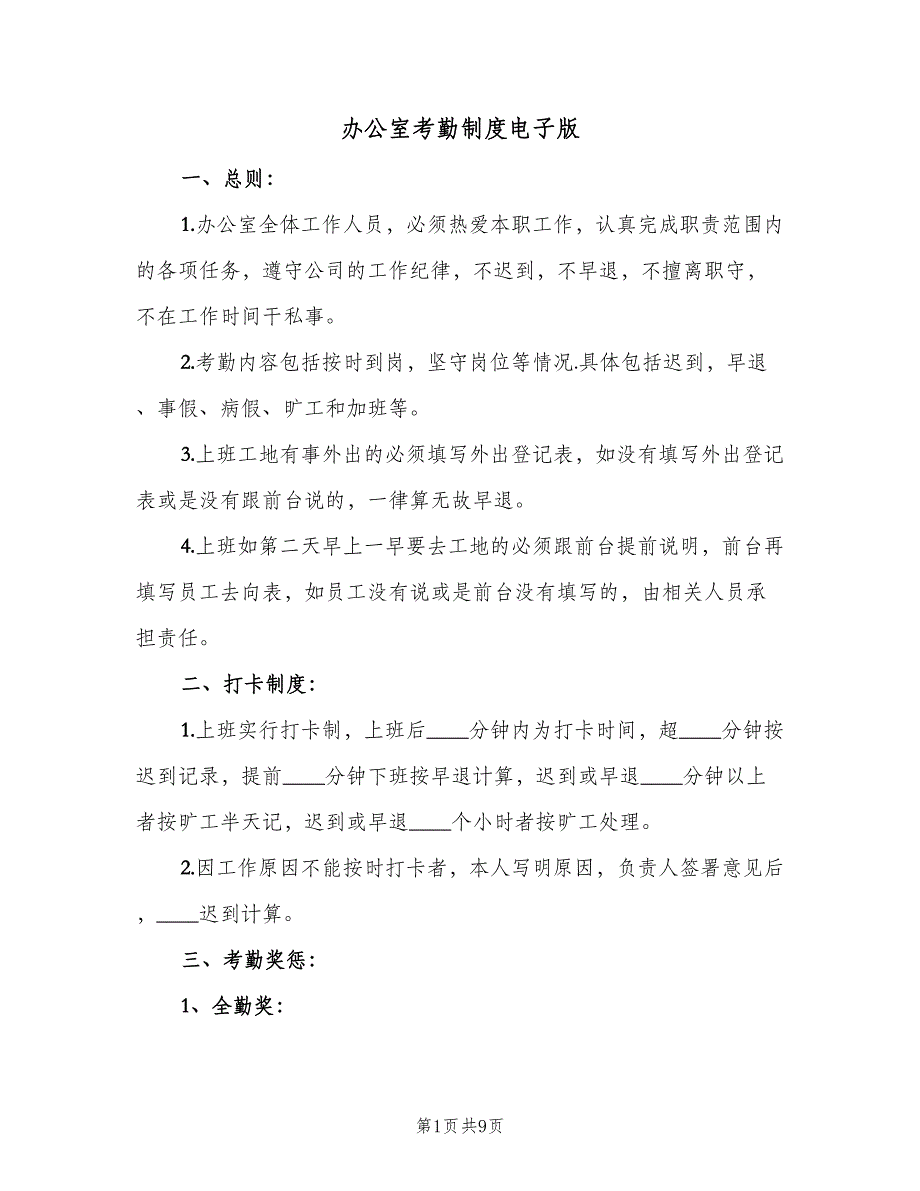 办公室考勤制度电子版
一、总则：
1.办公室全体工作人员，必须热爱本职工作，认真完成职责范围内
的各项任务，遵守公司的工作纪律，不迟到，不早退，不擅离职守，
不在工作时间干私事。
2.考勤内容包括按时到岗，坚守岗位等情况.具体包括迟到，早退
、事假、病假、旷工和加班等。
3.上班工地有事外出的必须填写外出登记表，如没有填写外出登记
表或是没有跟前台说的，一律算无故早退。
4.上班如第二天早上一早要去工地的必须跟前台提前说明，前台再
填写员工去向表，如员工没有说或是前台没有填写的，由相关人员承
担责任。
二、打卡制度：
1.上班实行打卡制，上班后____分钟内为打卡时间，超____分钟按
迟到记录，提前____分钟下班按早退计算，迟到或早退____分钟以上
者按旷工半天记，迟到或早退____个小时者按旷工处理。
2.因工作原因不能按时打卡者，本人写明原因，负责人签署意见后
，____迟到计算。
三、考勤奖惩：
1、全勤奖：
第1页共9页